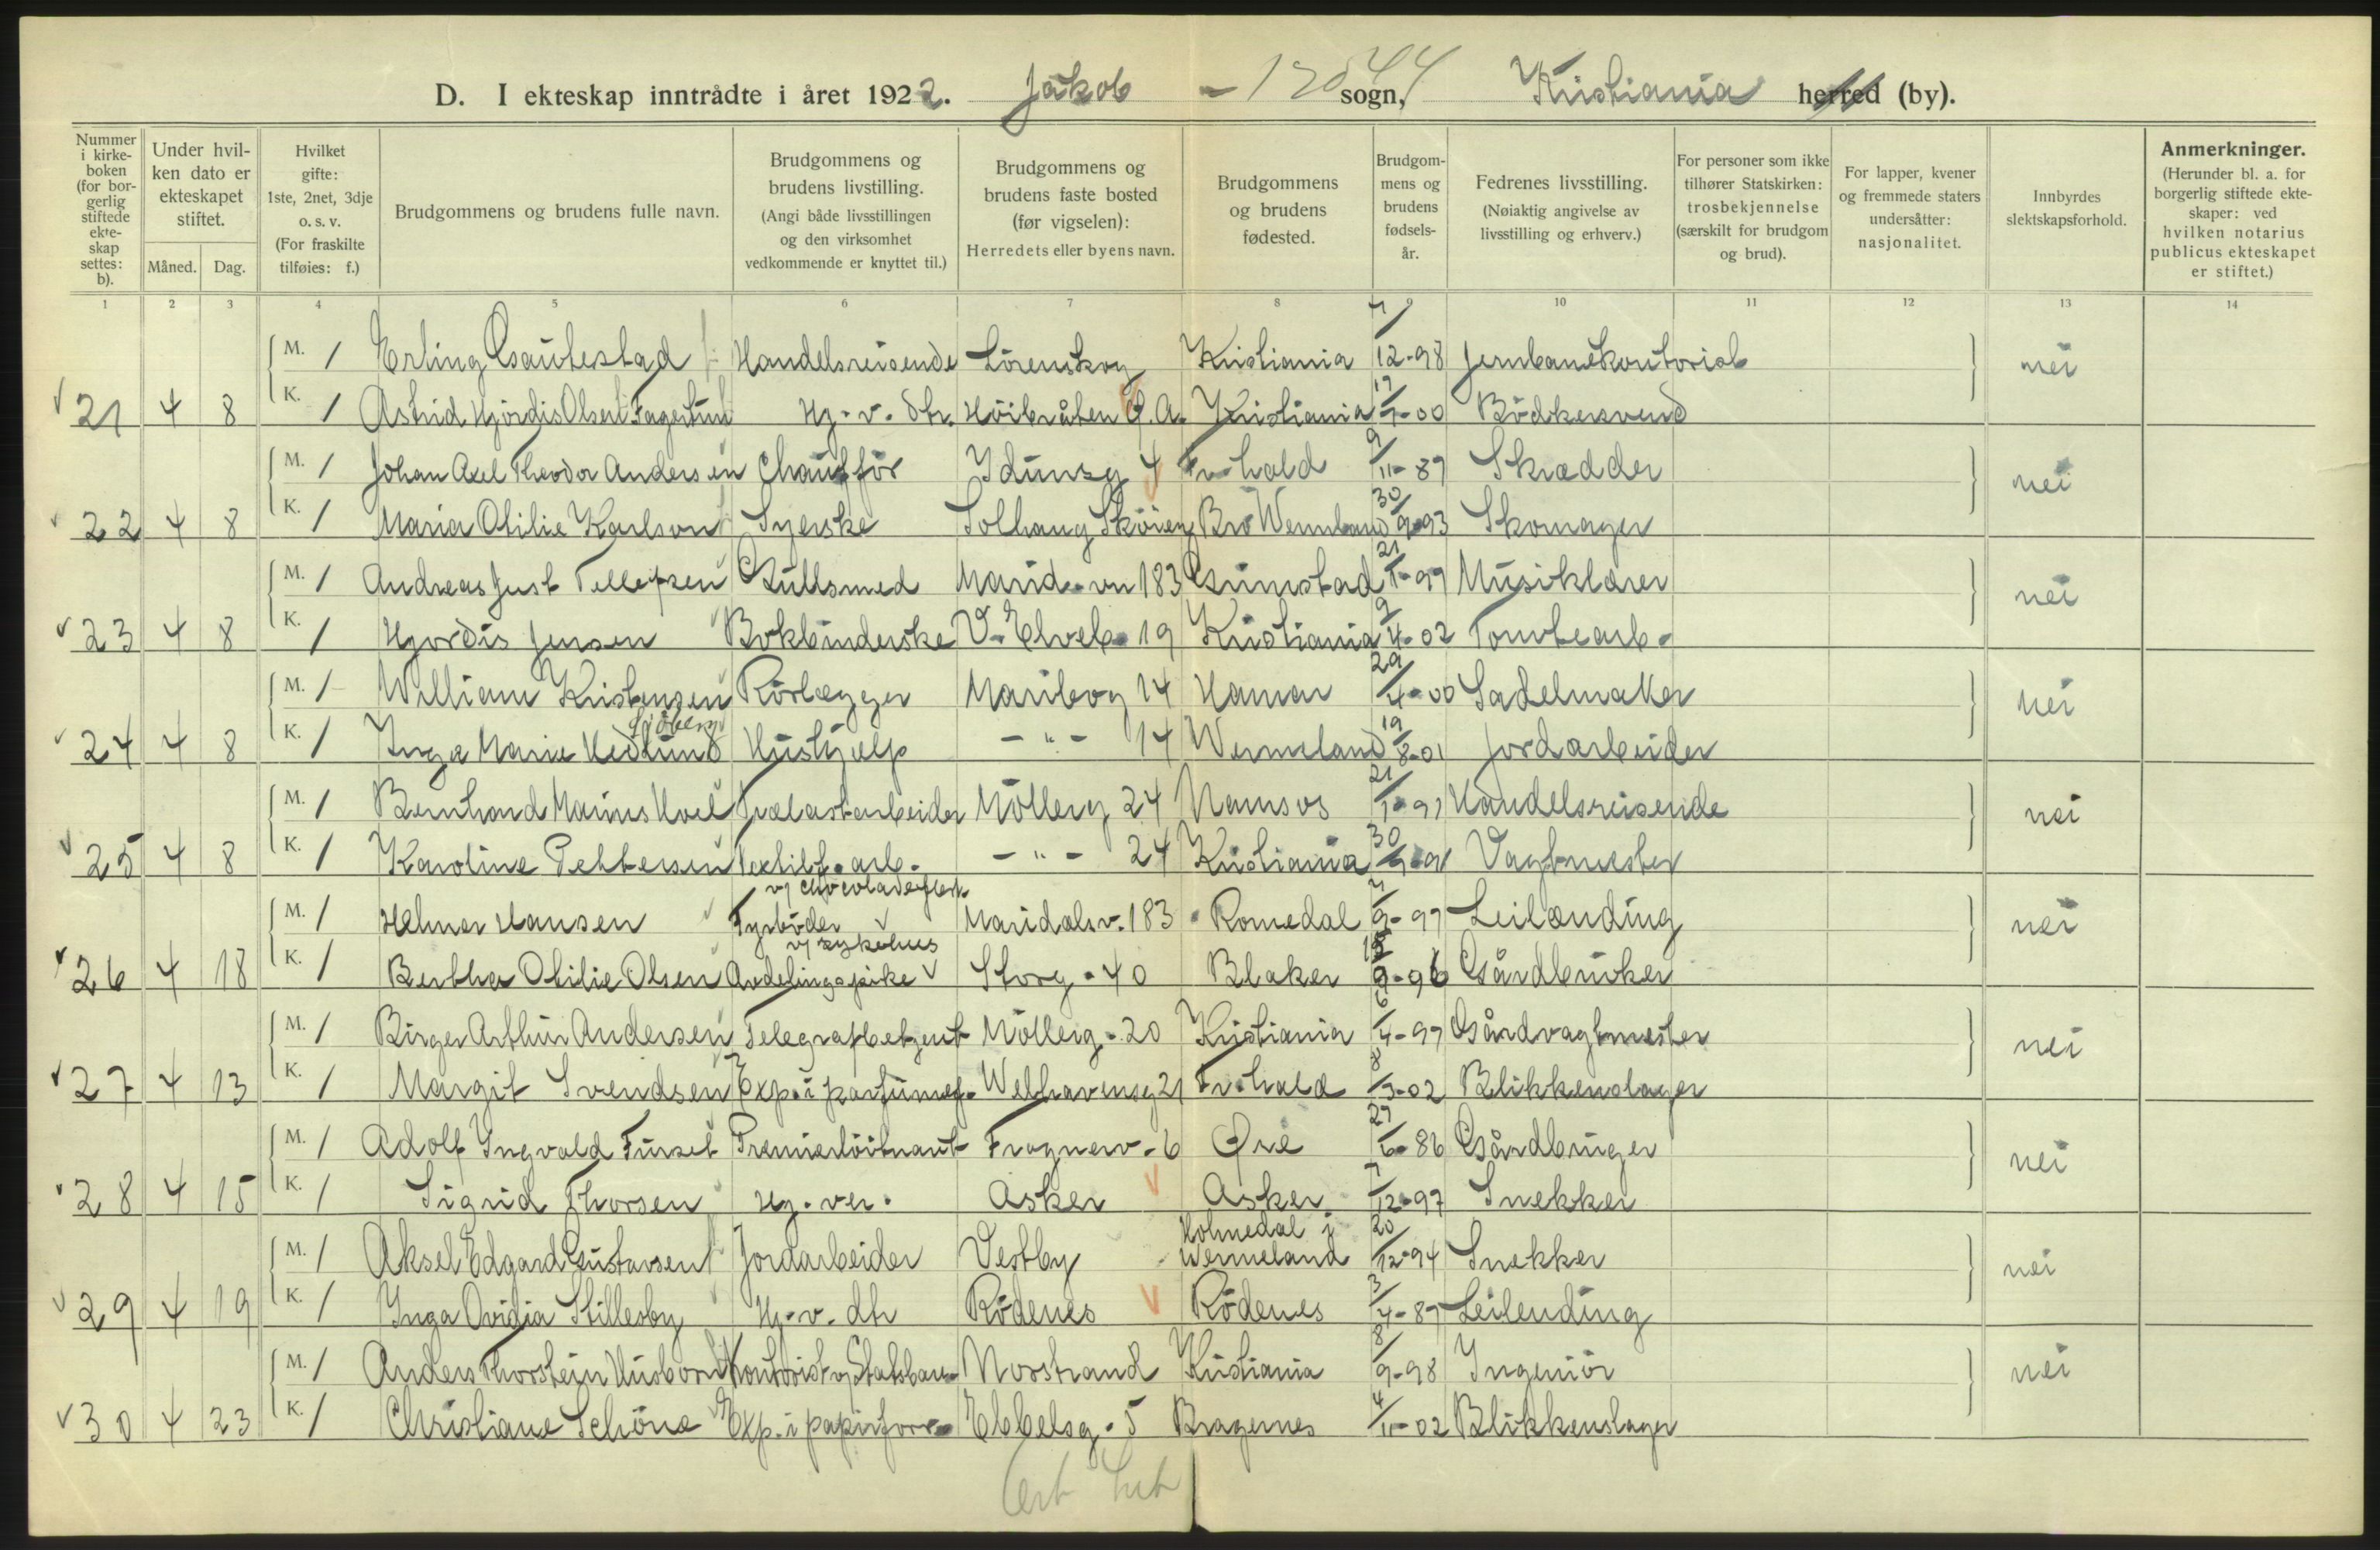 D. I ekteskap inntrådte i året 1922. Jakob sogn, Kristiania herred (by).
Nummer i kirkeboken (for borgerlig stiftede ekteskap settes: b).
Under hvilken dato er ekteskapet stiftet.
Måned. Dag.
Hvilket gifte: 1ste, 2net, 3dje o. s. v. (For fraskilte tilføies: f.)
Brudgommens og brudens fulle navn.
Brudgommens og brudens livstilling. (Angi både livsstillingen og den virksomhet vedkommende er knyttet til.)
Brudgommens og brudens faste bosted (før vigselen): Herredets eller byens navn.
Brudgommens og brudens fødested.
Brudgommens og brudens fødsels-år.
Fedrenes livsstilling. (Nøiaktig angivelse av livsstilling og erhverv.)
For personer som ikke tilhører Statskirken: trosbekjennelse (særskilt for brudgom og brud).
For lapper, kvener og fremmede staters undersåtter: nasjonalitet.
Innbyrdes slektskapsforhold.
Anmerkninger. (Herunder bl. a. for borgerlig stiftede ekteskaper: ved hvilken notarius publicus ekteskapet er stiftet.)
1 2 3 4 5 6 7 8 9 10 11 12 13 14
M. 1 Erling Gautestad Handelsreisende Lörenskog Kristiania 7/12-98 Jernbanekontorist nei
21 4 8 K. 1 Astrid Hjördis Olsen Fagertun Hj. v. dtr. Höibråten Ö. A. Kristiania 00 Bödkersvend
M. 1 Johan Axel Theodor Andersen Chaufför Idunsg 4 Fr.hald 9/11-89 Skrædder nei
22 4 8 K. 1 Maria Otilie Karlson Syerske Solhaug Skøien Bro Wermland 30/9-93 Skomager
M. 1 Andreas Just Tellefsen Gullsmed Marid.vn 183 Grimstad 21/1-99 Musiklærer nei
23 4 8 K. 1 Hjordis Jensen Bokbinderske V. Elveb. 19 Kristiania 9/4-02 Tomtearb.
M. 1 William Kristensen Rörlægger Maribog 14 Hamar 29/4-00 Sadelmaker nei
24 4 8 K. 1 Inga Marie Hedlund Sjöberg Hushjelp -"- 14 Wermeland 19/8-01 Jordarbeider
M. 1 Bernhard Marius Hoel Trælastarbeider Mölleg 24 Namsos 21/1-91 Handelsreisende nei
25 4 8 K. 1 Karoline Pettersen Textilf. arb. -"- 24 Kristiania 30/ 91 Vagtmester
M. 1 Helmer Hansen Fyrböder v/ chocoladefabr. Maridalsv. 183 Romedal 7/9-97 Leilænding nei
26 4 18 K. 1 Bertha Otilie Olsen Avdelingspike v/ sykehus Storg. 40 Blaker 18/9-96 Gårdbruker
M. 1 Birger Arthur Andersen Telegrafbetjent Mölleg. 20 Kristiania 6/4-97 Gårdvagtmester nei
27 4 13 K. 1 Margit Svendsen Exp. i parfumef. Welhavensg 21 Fr.hald 8/3-02 Blikkenslager
M. 1 Adolf Ingvald Furset Premierlöitnant Frognerv. 6 Öre 27/6-86 Gårdbruger nei
28 4 15 K. 1 Sigrid Thorsen Hj. ver. Asker Asker 7/12-97 Snekker
M. 1 Aksel Edgard Gustavsen Jordarbeider Vestby Holmedal i Wermeland 20/12-94 Snekker nei
29 4 19 K. 1 Inga Ovidia Stillesby Hj. v. dtr Rödenes Rödenes 3/4-87 Leilending
M. 1 Anders Thorstein Husborn Kontorist v/ Statsban. Norstrand Kristiania 8/9-98 Ingeniör nei
30 4 23 K. 1 Christiane Schöne Exp. i papirforr. Ebbelsg. 5 Bragernes 4/11-02 Blikkenslager